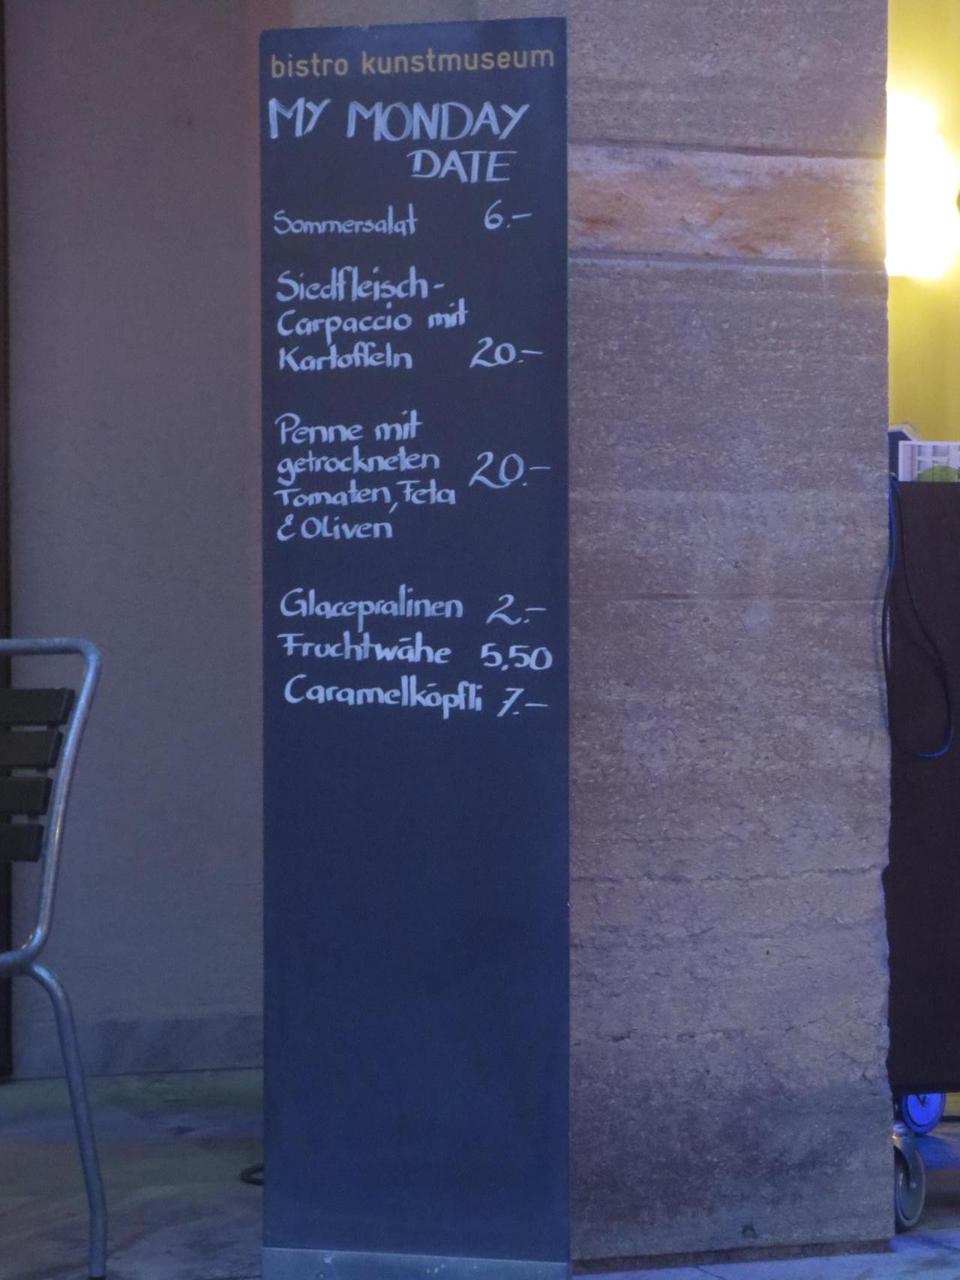 bistro kunstmuseum
MY MONDAY
DATE
Sommersalat 6.–
Siedfleisch-
Carpaccio mit
Kartoffeln 20.–
Penne mit
getrockneten 20.–
Tomaten, Feta
& Oliven
Glacepralinen 2.–
Fruchtwähe 5,50
Caramelköpfli 7.–